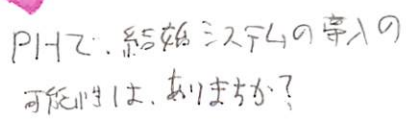 PHで、結婚システムの導入の
可能性は、ありまちか?